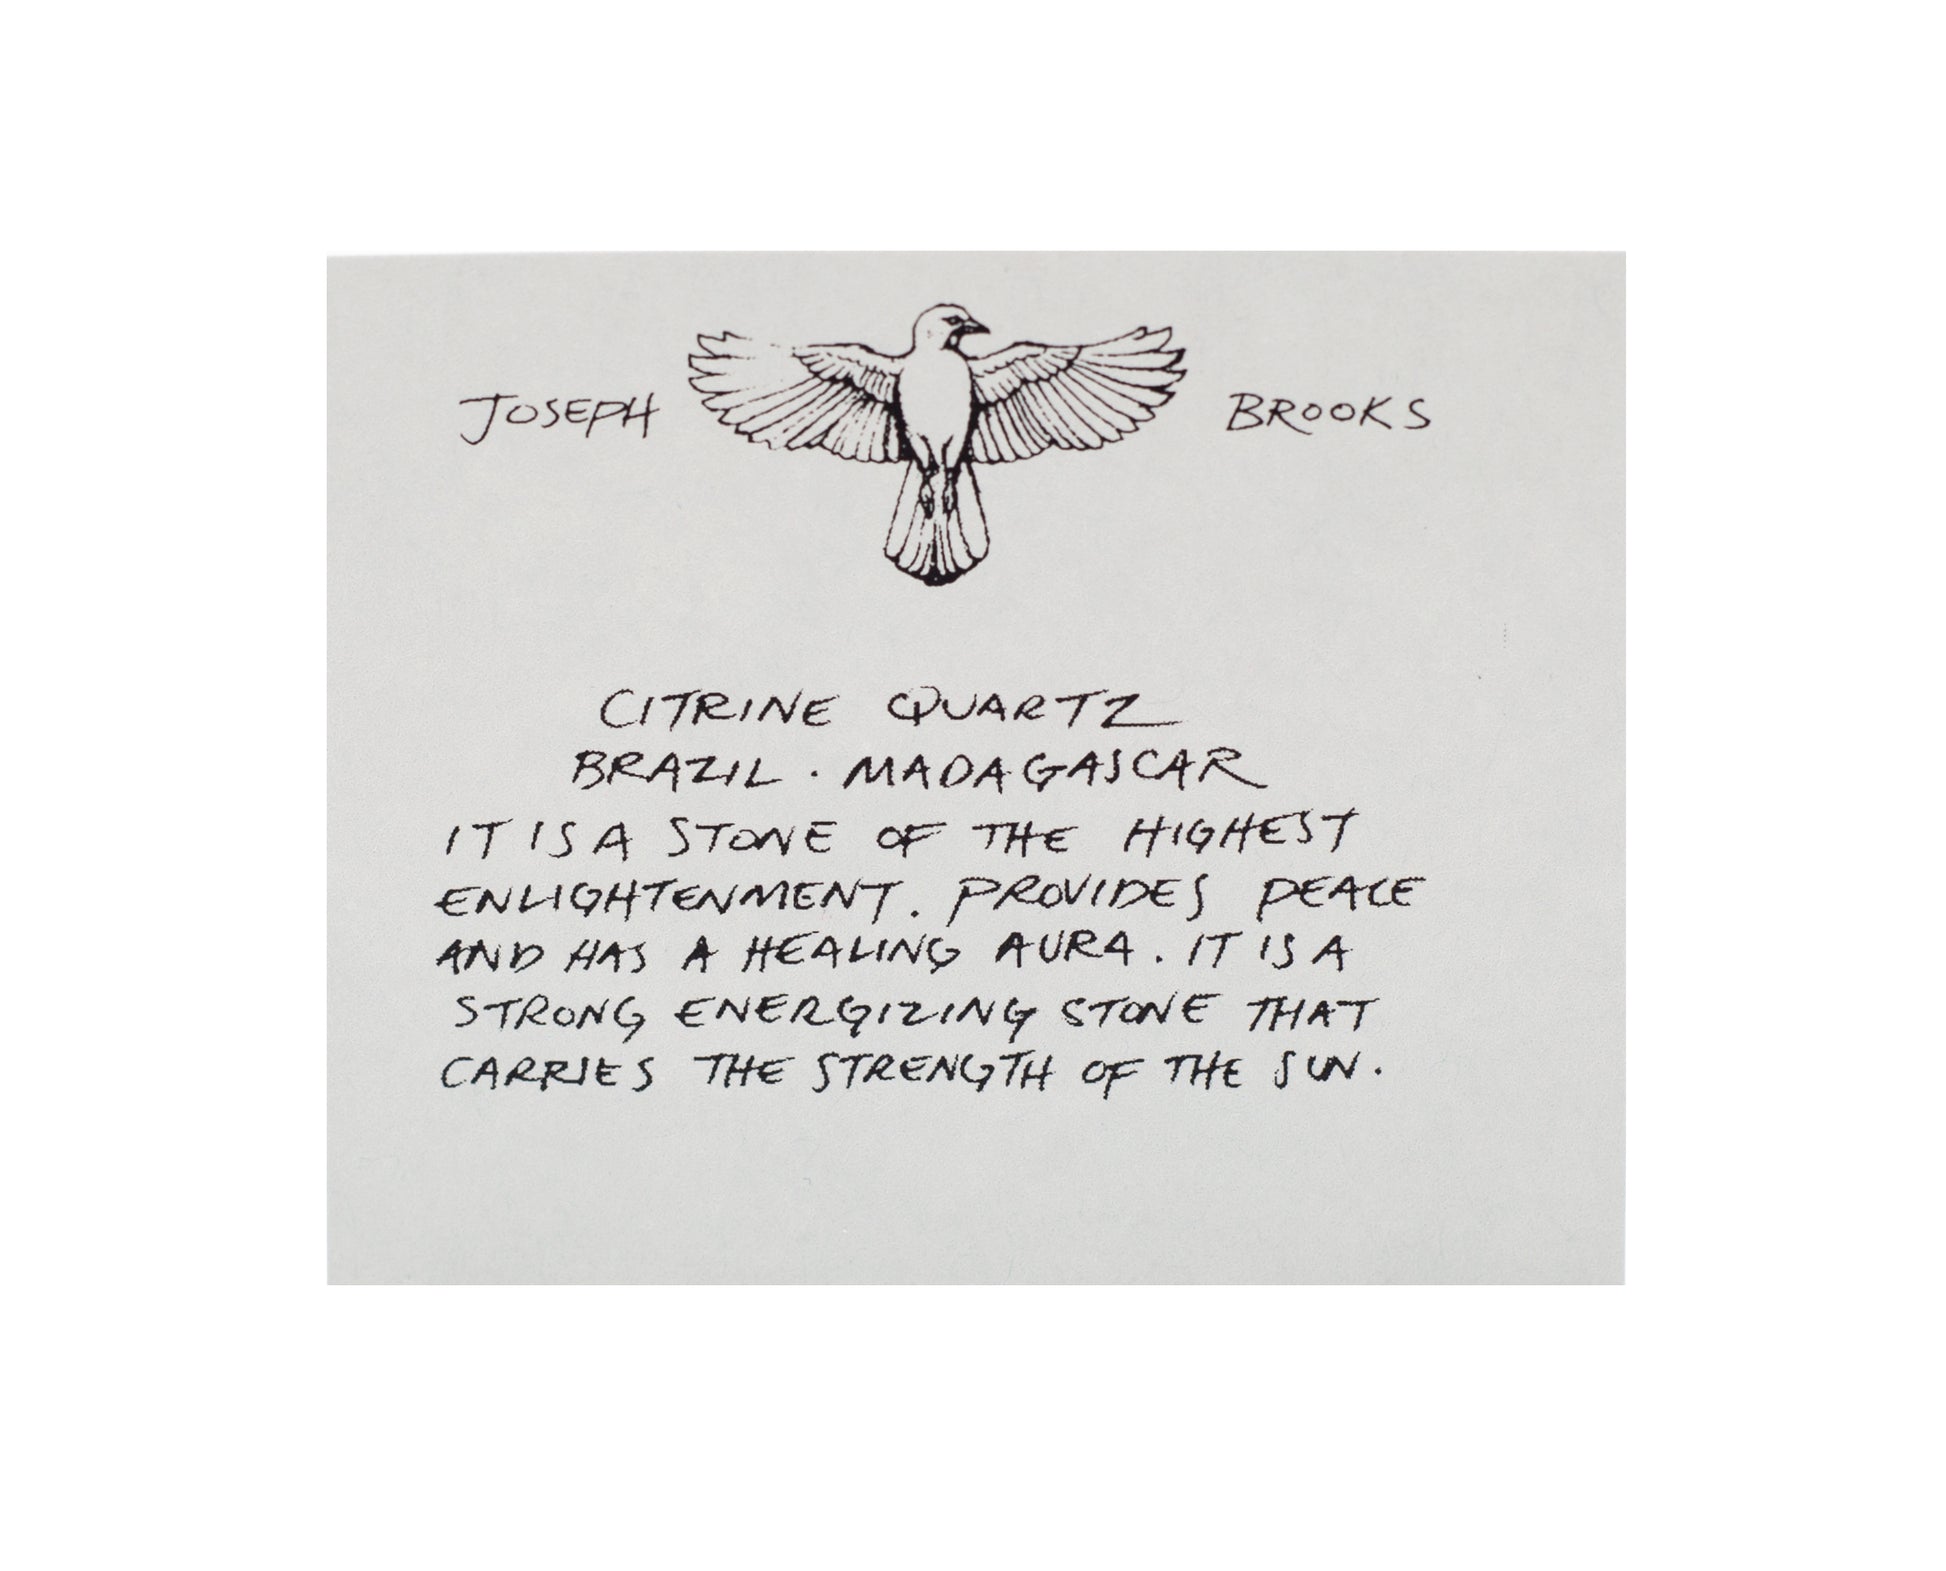 JOSEPH BROOKS
CITRINE QUARTZ
BRAZIL · MADAGASCAR
IT IS A STONE OF THE HIGHEST
ENLIGHTENMENT. PROVIDES PEACE
AND HAS A HEALING AURA. IT IS A
STRONG ENERGIZING STONE THAT
CARRIES THE STRENGTH OF THE SUN.